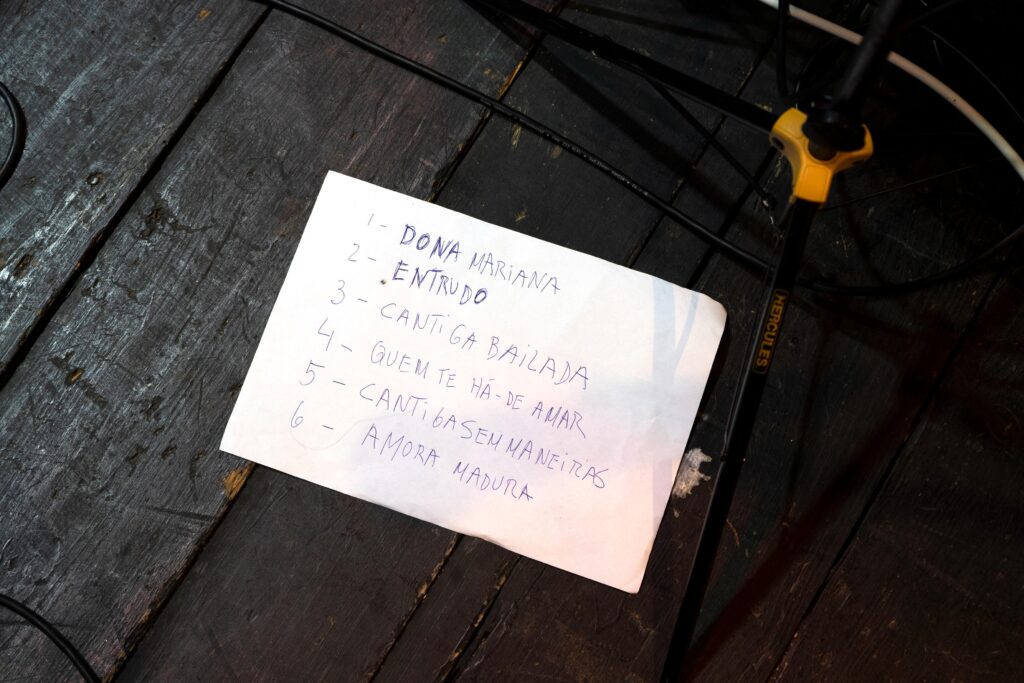 1 - DONA MARIANA
2 - ENTRUDO
3 - CANTIGA BAILADA
4 - QUEM TE HÁ-DE AMAR
5 - CANTIGA SEM MANEIRAS
6 - AMORA MADURA
HERCULES